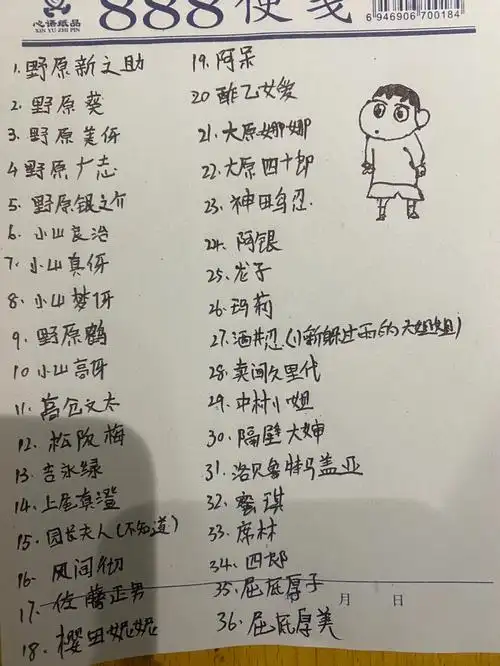 888便笺
心语纸品
XIN YU ZHI PIN
6 946906 700184
1.野原新之助
2.野原葵
3.野原美伢
4野原广志
5.野原银之介
6小山良治
7.小山真伢
8.小山梦伢
9.野原鹤
10小山高伢
11.高仓文太
12.松阪梅
13.吉永绿
14.上尾真澄
15.园长夫人(不知道)
16.风间彻
17.佐藤正男
18.樱田妮妮
19.阿呆
20酢乙女爱
21.大原娜娜
22.大原四十郎
23.神田鸟忍
24.阿银
25.龙子
26.玛莉
27.酒井忍(小新躲过雨的大姐姐)
28.卖间久里代
29.中村小姐
30.隔壁大婶
31.洛贝鲁特马盖亚
32.蜜琪
33.席林
34.四郎
35.屈底厚子
36.屈底厚美
月 日